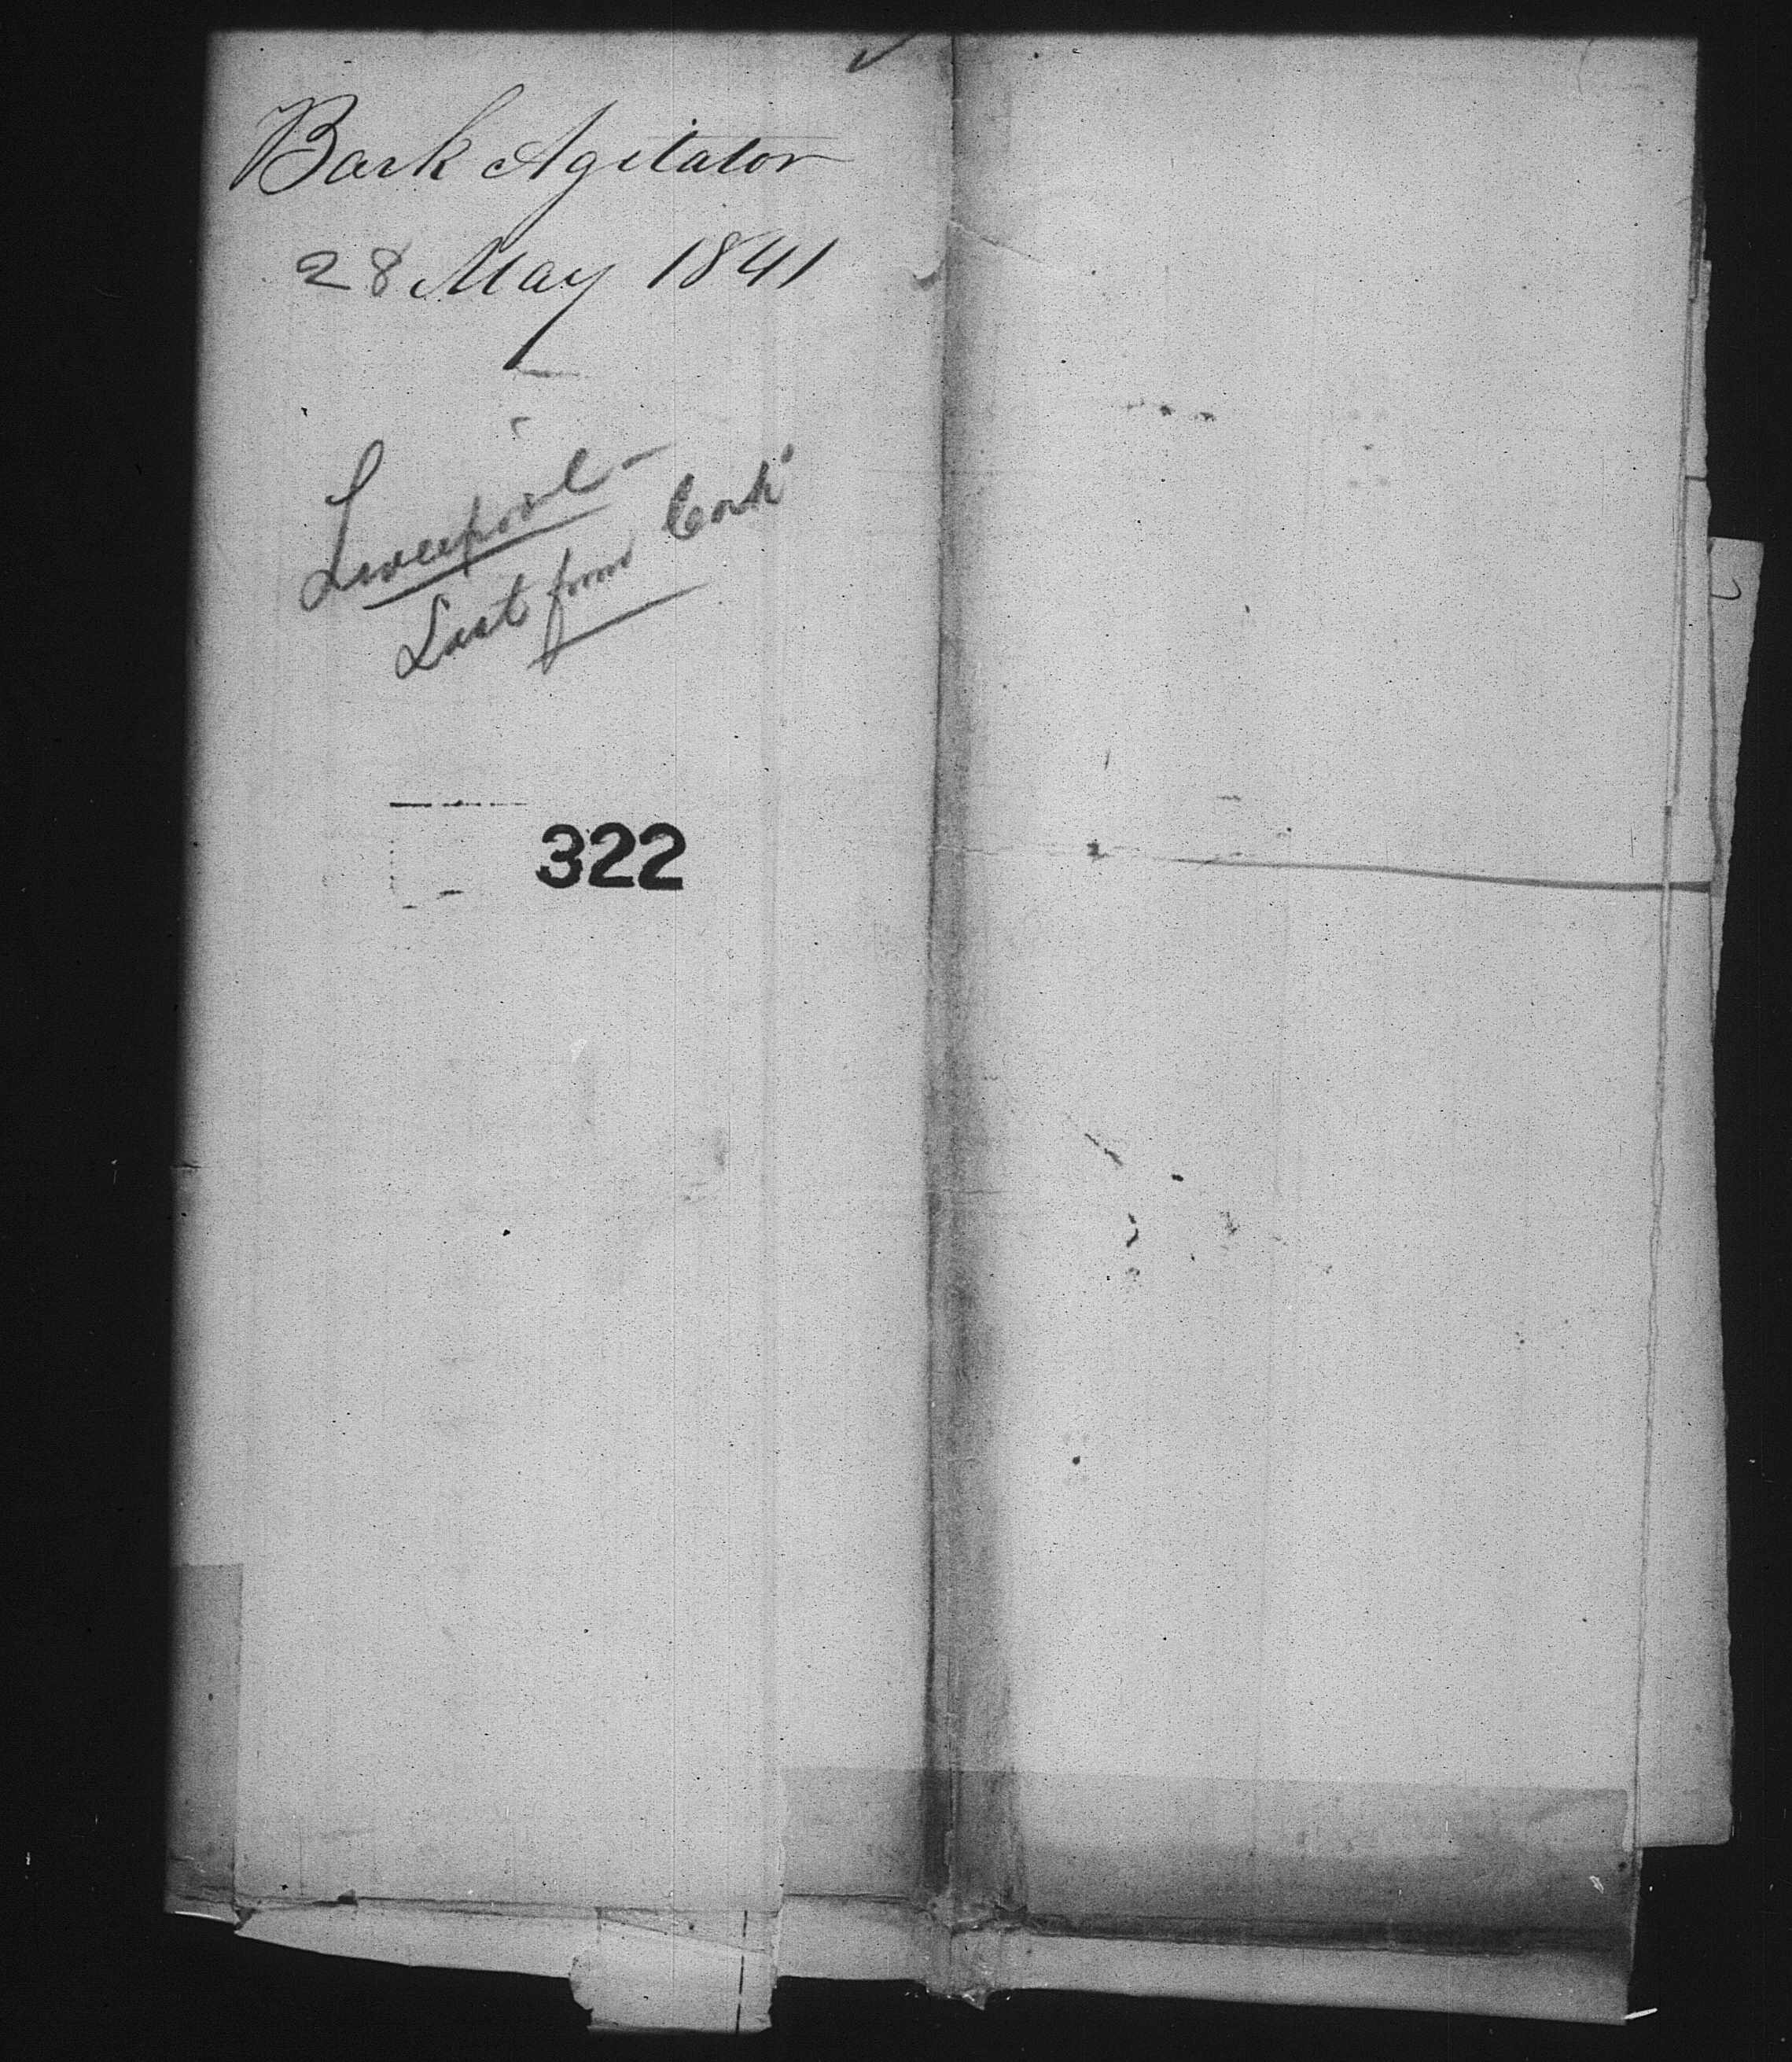 Bark Agitator
28 May 1841
Liverpool -
Last from Cork
322